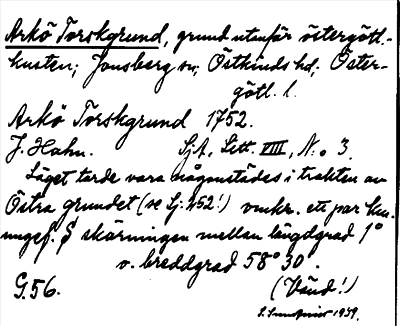 Arkö Torskgrund, grund utanför östergötl.-
kusten; Jonsberg sn, Östkinds hd, Öster-
götl. l.
Arkö Torskgrund 1752.
J. Hahn. SjA, Lett. VIII, N:o 3.
Läget torde vara någonstädes i trakten av
Östra grundet (se Sj. 452!) omkr. ett par km.
ungef. skärningen mellan längdgrad 1°
o. breddgrad 58° 30'.
G. 56. (Vänd!)
1939.